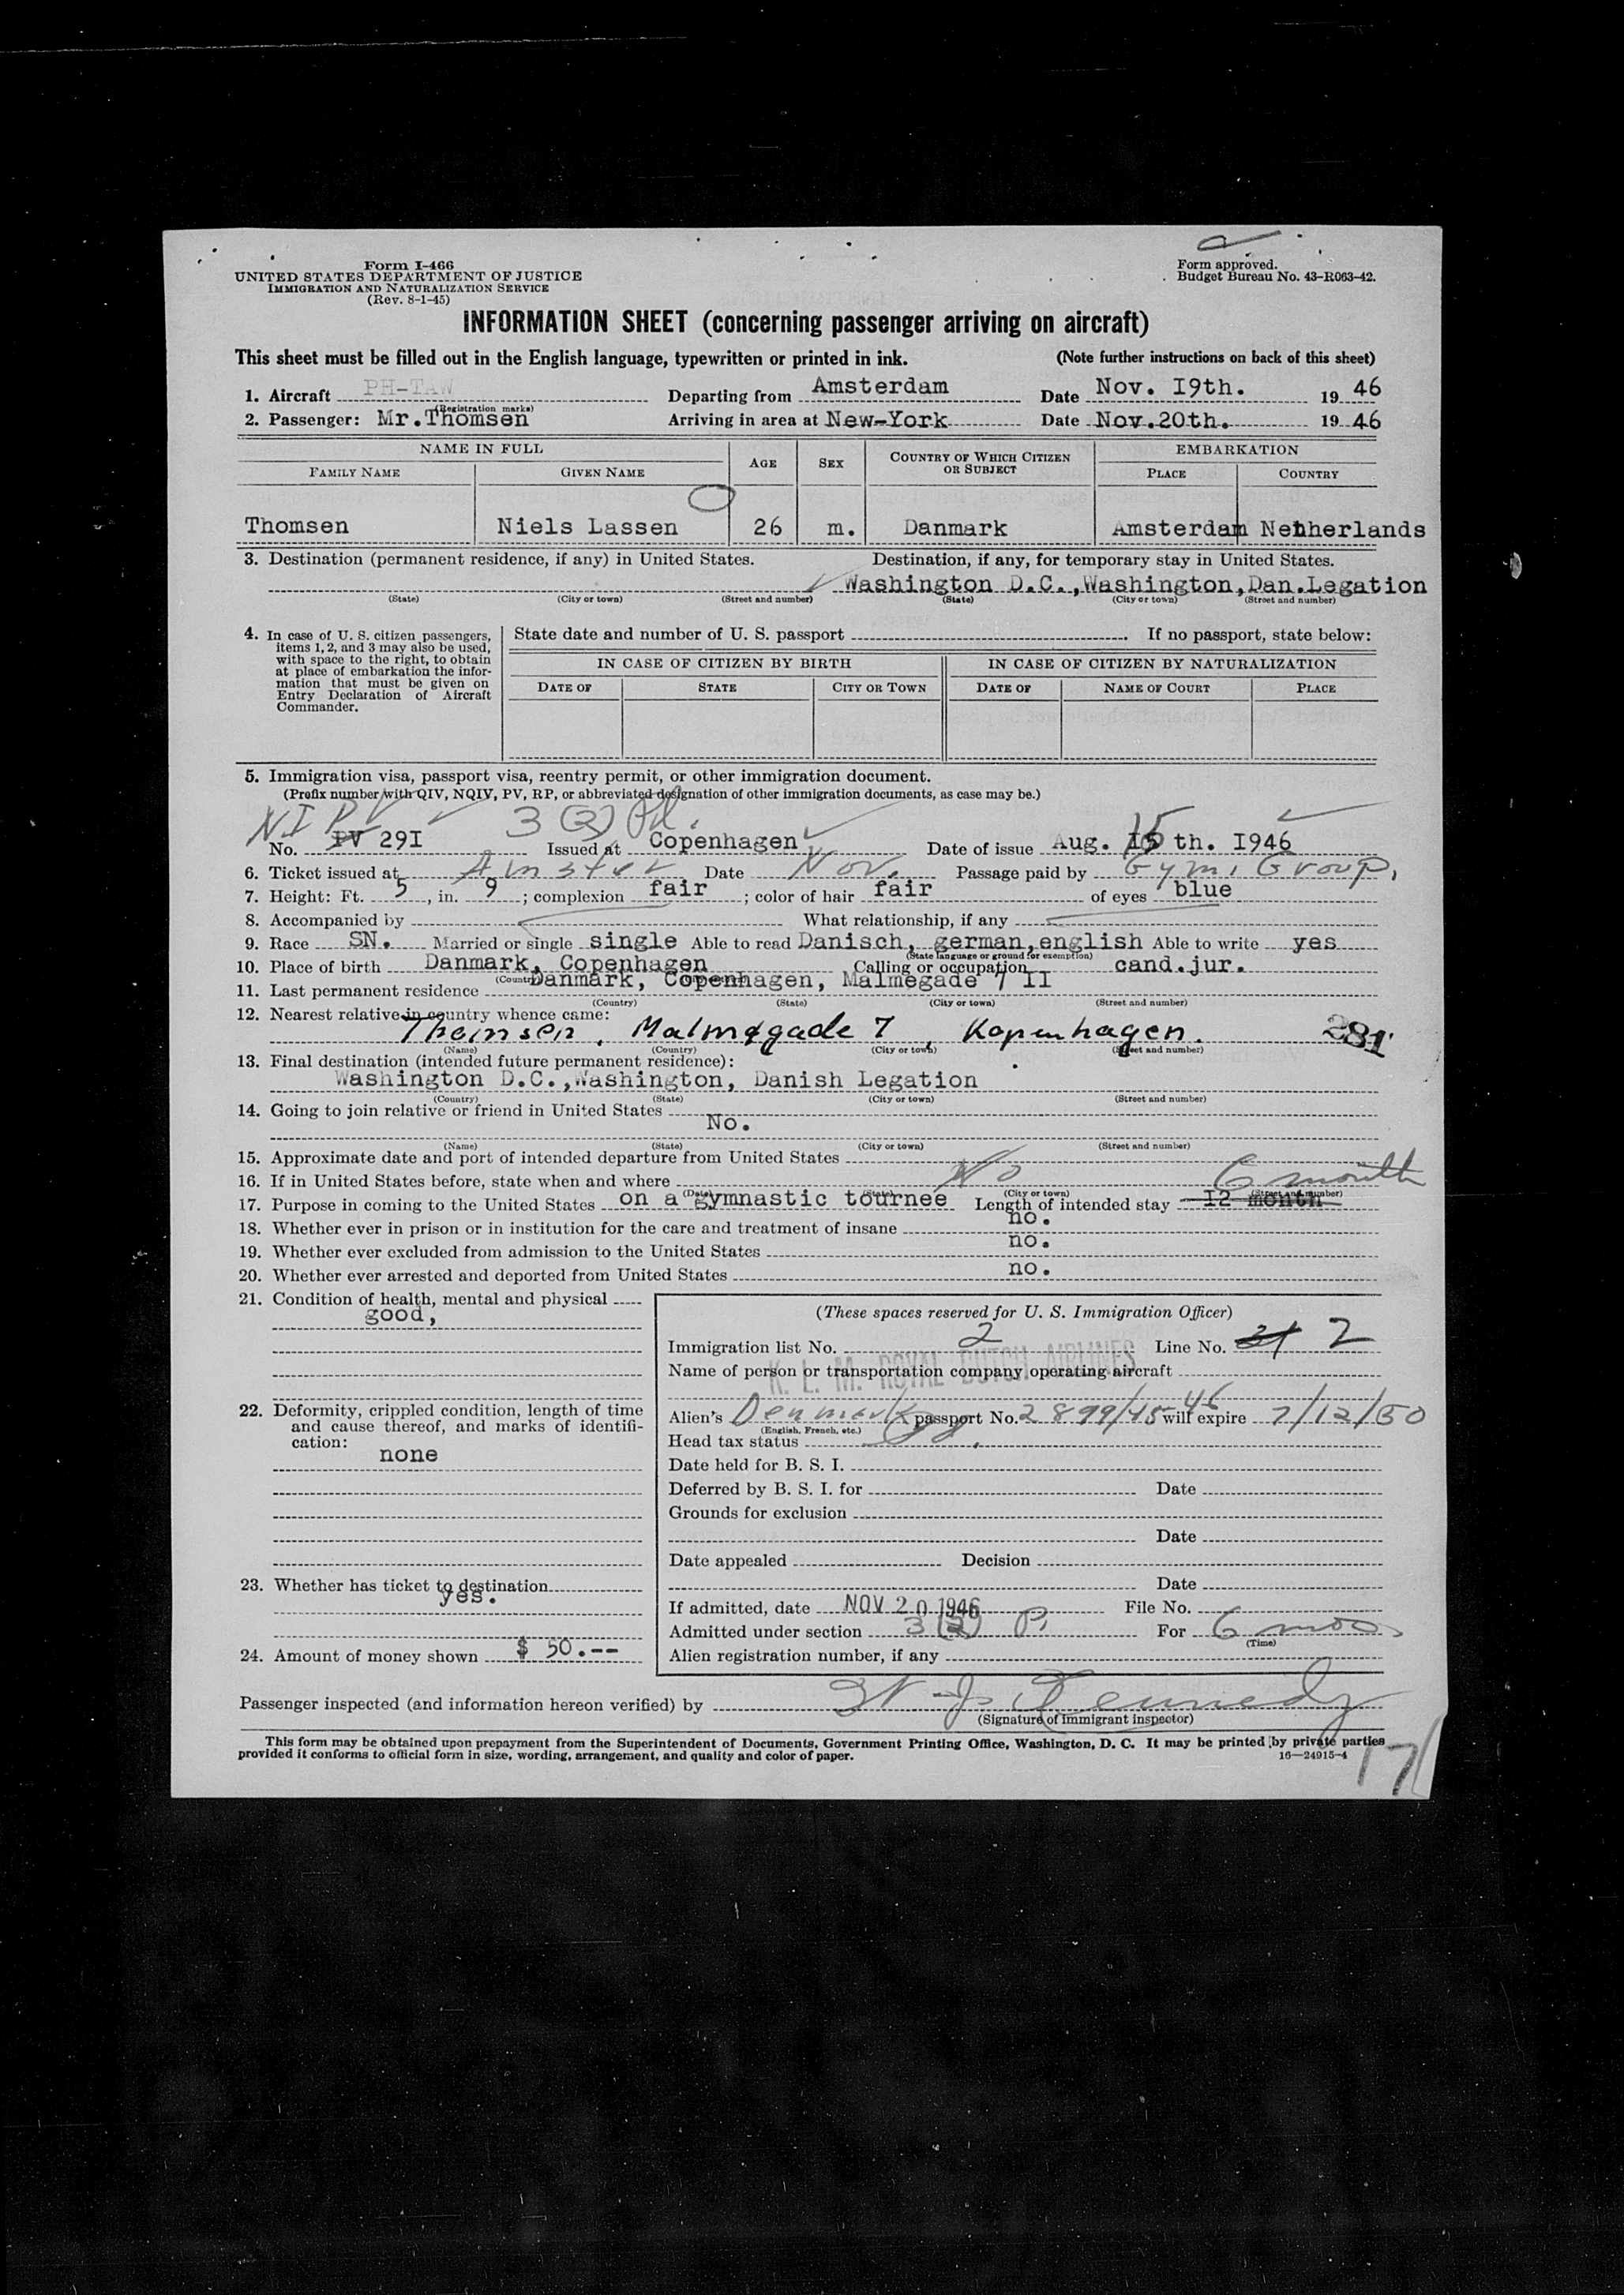 Form I-466
UNITED STATES DEPARTMENT OF JUSTICE
IMMIGRATION AND NATURALIZATION SERVICE
(Rev. 8-1-45)
Form approved.
Budget Bureau No. 43-R063-42.
INFORMATION SHEET (concerning passenger arriving on aircraft)
This sheet must be filled out in the English language, typewritten or printed in ink. (Note further instructions on back of this sheet)
1. Aircraft PH-TAW Departing from Amsterdam Date Nov. I9th. 19 46
(Registration marks)
2. Passenger: Mr.Thomsen Arriving in area at New-York Date Nov.20th. 19 46
NAME IN FULL AGE SEX COUNTRY OF WHICH CITIZEN OR SUBJECT EMBARKATION
FAMILY NAME GIVEN NAME PLACE COUNTRY
Thomsen Niels Lassen 26 m. Danmark Amsterdam Netherlands
3. Destination (permanent residence, if any) in United States. Destination, if any, for temporary stay in United States.
Washington D.C.,Washington,Dan.Legation
(State) (City or town) (Street and number) (State) (City or town) (Street and number)
4. In case of U. S. citizen passengers, items 1, 2, and 3 may also be used, with space to the right, to obtain at place of embarkation the information that must be given on Entry Declaration of Aircraft Commander.
State date and number of U. S. passport . If no passport, state below:
IN CASE OF CITIZEN BY BIRTH IN CASE OF CITIZEN BY NATURALIZATION
DATE OF STATE CITY OR TOWN DATE OF NAME OF COURT PLACE
5. Immigration visa, passport visa, reentry permit, or other immigration document.
(Prefix number with QIV, NQIV, PV, RP, or abbreviated designation of other immigration documents, as case may be.)
NI PV 3(2)
No. PV 29I Issued at Copenhagen Date of issue Aug. 15 th. I946
6. Ticket issued at Amster Date Nov. Passage paid by Gym. Group.
7. Height: Ft. 5, in. 9; complexion fair; color of hair fair of eyes blue
8. Accompanied by What relationship, if any
9. Race SN. Married or single single Able to read Danisch, german,english Able to write yes
(State language or ground for exemption)
10. Place of birth Danmark, Copenhagen Calling or occupation cand.jur.
11. Last permanent residence Danmark, Copenhagen, Malmegade 7 II
(Country) (State) (City or town) (Street and number)
12. Nearest relative in country whence came:
Thomsen, Malmøgade 7, Kopenhagen. 281
(Name) (Country) (City or town) (Street and number)
13. Final destination (intended future permanent residence):
Washington D.C.,Washington, Danish Legation
(Country) (State) (City or town) (Street and number)
14. Going to join relative or friend in United States
No.
(Name) (State) (City or town) (Street and number)
15. Approximate date and port of intended departure from United States
16. If in United States before, state when and where No 6 month
(Date) (State) (City or town) (Street and number)
17. Purpose in coming to the United States on a gymnastic tournee Length of intended stay I2 month
18. Whether ever in prison or in institution for the care and treatment of insane no.
19. Whether ever excluded from admission to the United States no.
20. Whether ever arrested and deported from United States no.
21. Condition of health, mental and physical
good,
22. Deformity, crippled condition, length of time and cause thereof, and marks of identification:
none
23. Whether has ticket to destination
yes.
24. Amount of money shown $ 50.--
(These spaces reserved for U. S. Immigration Officer)
Immigration list No. 2 Line No. 31 2
K. L. M. ROYAL DUTCH AIRLINES
Name of person or transportation company operating aircraft
Alien's Denmark passport No. 2899/45-46 will expire 7/12/50
(English, French, etc.)
Head tax status
Date held for B. S. I.
Deferred by B. S. I. for Date
Grounds for exclusion
Date
Date appealed Decision
Date
If admitted, date NOV 20 1946 File No.
Admitted under section 3(2) P. For 6 mos
(Time)
Alien registration number, if any
Passenger inspected (and information hereon verified) by W J Kennedy
(Signature of Immigrant inspector)
This form may be obtained upon prepayment from the Superintendent of Documents, Government Printing Office, Washington, D. C. It may be printed by private parties
provided it conforms to official form in size, wording, arrangement, and quality and color of paper. 16—24915-4
17